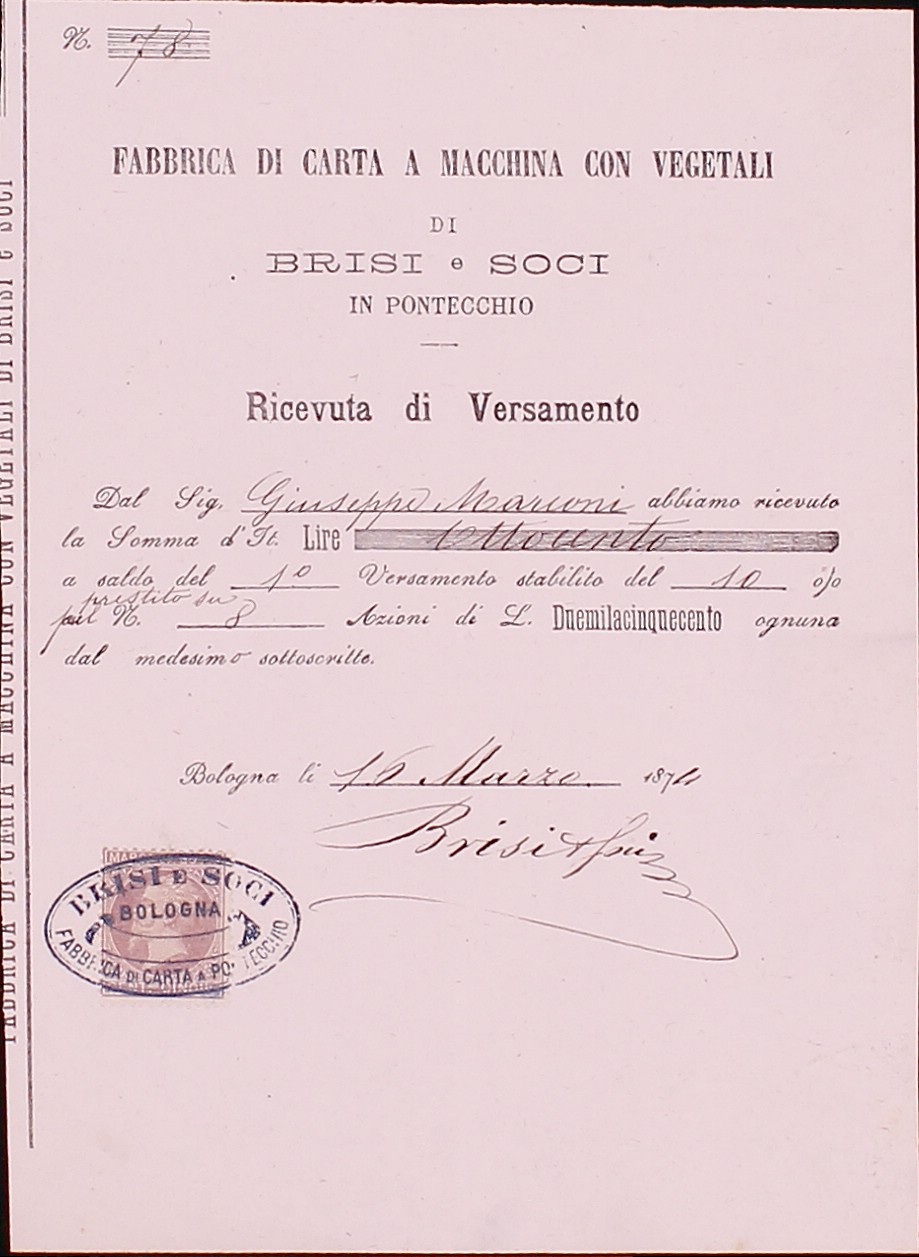 N. 78
FABBRICA DI CARTA A MACCHINA CON VEGETALI
DI
BRISI e SOCI
IN PONTECCHIO
Ricevuta di Versamento
Dal Sig. Giuseppe Marconi abbiamo ricevuto
la Somma d'It. Lire Ottocento
a saldo del 1º Versamento stabilito del 10 %
prestito su
N. 8 Azioni di L. Duemilacinquecento ognuna
dal medesimo sottoscritte.
Bologna li 16 Marzo 1874
Brisi & Soci
BRISI E SOCI
BOLOGNA
FABBRICA DI CARTA A PONTECCHIO
FABBRICA DI CARTA A MACCHINA CON VEGETALI DI BRISI e SOCI